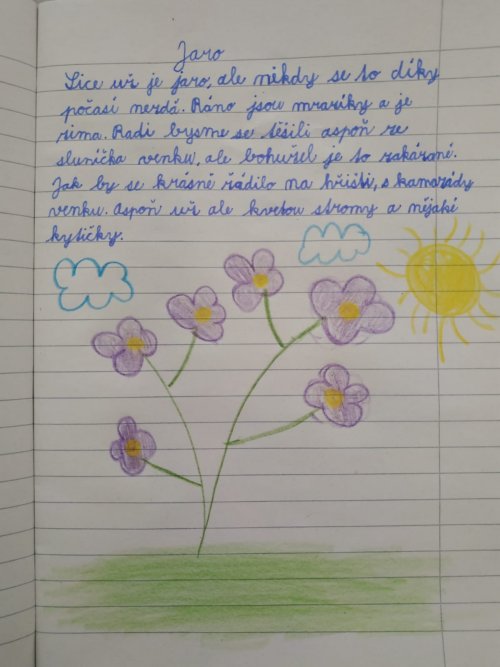 Jaro
Sice už je jaro, ale někdy se to díky
počasí nezdá. Ráno jsou mrazíky a je
zima. Radi bysme se těšili aspoň ze
sluníčka venku, ale bohužel je to zakázané.
Jak by se krásně řádilo na hřišti, s kamarády
venku. Aspoň už ale kvetou stromy a nějaké
kytičky.